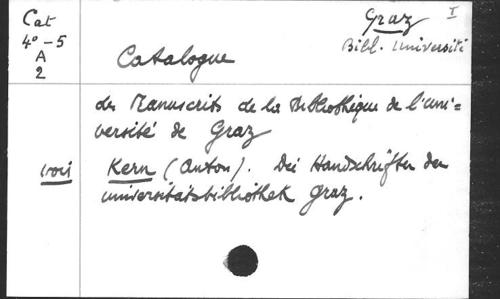 Cat
4° - 5
A
2
Graz I
Bibl. Université
Catalogue
des Manuscrits de la Bibliothèque de l'uni=
versité de Graz
voir Kern (Anton). Dei Handschriften der
universitätsbibliothek Graz.